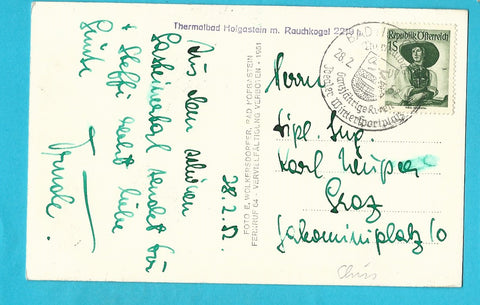 Thermalbad Hofgastein m. Rauchkogel 22
Aus dem schönen
Gasteinertal sendet Dir
+ Steffi recht liebe
Grüße
Trude.
28.2.52.
FOTO E. WOLKERSDORFER, BAD HOFGASTEIN
FERNRUF 64 - VERVIELFÄLTIGUNG VERBOTEN - 1951
BAD
28.2.
ganzjährige Kur-
Wintersportplatz
Republik Österreich
1S
Herrn
Dipl. Ing.
Karl
Graz
Jakominiplatz 10